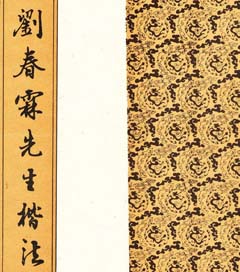 劉春霖先生楷法